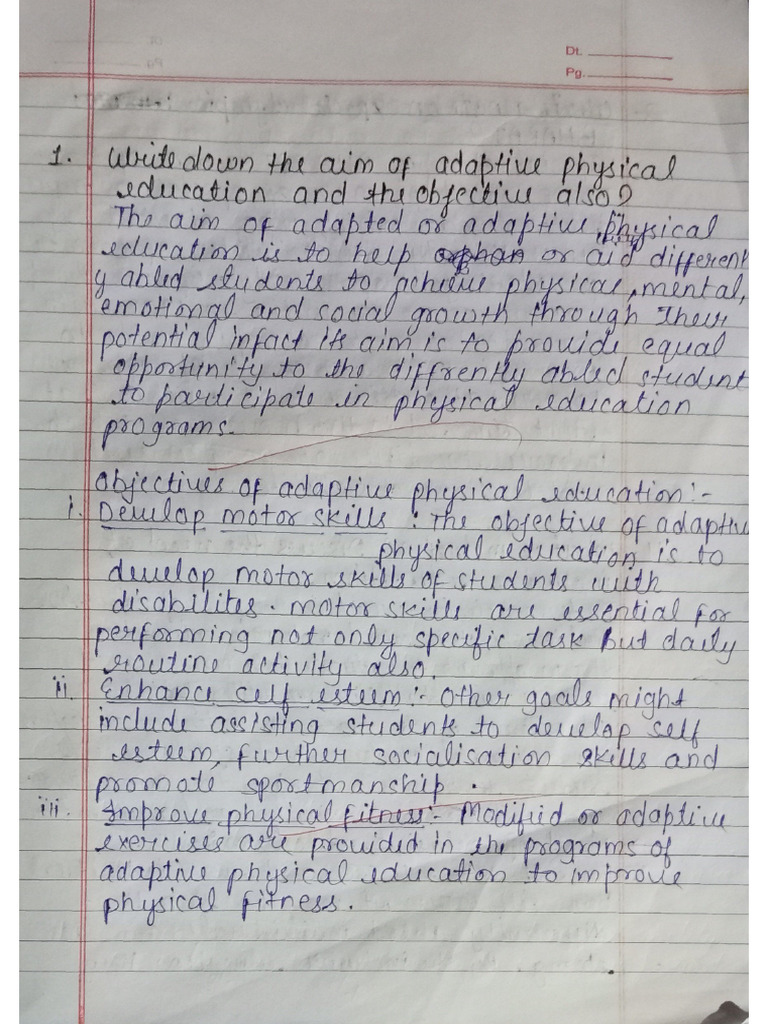 Dt.
Pg.
1. Write down the aim of adaptive physical
education and the objective also?
The aim of adapted or adaptive physical
education is to help or aid different
y abled students to achieve physical, mental,
emotional and social growth through their
potential infact its aim is to provide equal
opportunity to the diffrently abled student
to participate in physical education
programs.
Objectives of adaptive physical education:-
i. Develop motor skills : The objective of adaptive
physical education is to
develop motor skills of students with
disabilites. motor skills are essential for
performing not only specific task but daily
routine activity also.
ii. Enhance self esteem:- Other goals might
include assisting students to develop self
esteem, further socialisation skills and
promote sportmanchip.
iii. Improve physical fitness:- Modified or adaptive
exercises are provided in the programs of
adaptive physical education to improve
physical fitness.